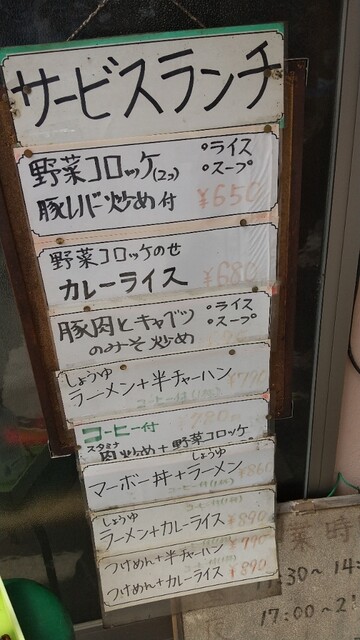 サービスランチ
野菜コロッケ(2コ) °ライス
豚レバー炒め付 °スープ
¥650
野菜コロッケのせ
カレーライス ¥680
豚肉とキャベツ °ライス
のみそ炒め °スープ
しょうゆ
ラーメン+半チャーハン ¥790
コーヒー付
スタミナ
肉炒め+野菜コロッケ
しょうゆ
マーボー丼+ラーメン ¥860
しょうゆ
ラーメン+カレーライス ¥890
つけめん+半チャーハン ¥790
つけめん+カレーライス ¥890
業時
:30~14:
17:00~2